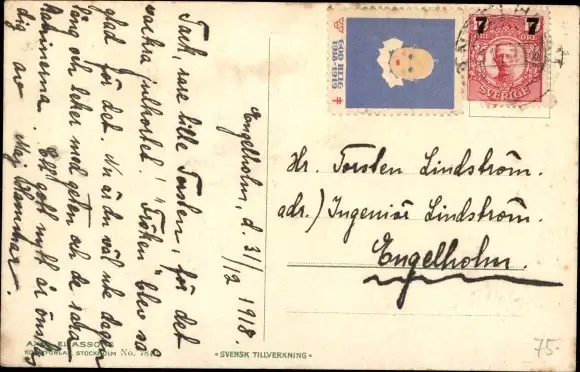 Engelholm, d. 31/12 1918.
Tack, rare lille Torsten, för det
vackra julkortet! "Fröken" blev så
glad för det. Nu är du väl ute dagen
lång och leker med geten och de
kaninerna. Ett gott nytt år önskas
dig av Maj
GOD HELG
1918-1919
7 7
ÖRE ÖRE
SVERIGE
Hr. Torsten Lindström.
adr.) Ingeniör Lindström.
Engelholm.
AXEL ELIASSONS
KONSTFÖRLAG, STOCKHOLM No. 78
•SVENSK TILLVERKNING•
75-